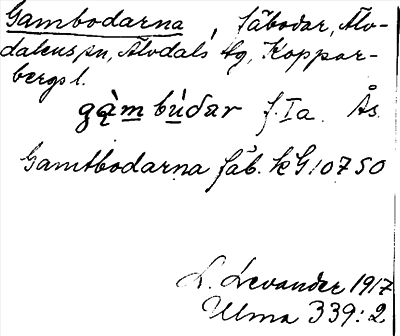 Gambodarna, fäbodar, Älv-
dalens sn, Älvdals tg, Koppar-
bergs l.
gàm bùdar f. Ia. Ås.
Gamtbodarna fäb. kG 10750
L. Levander 1917
Ulma 339:2